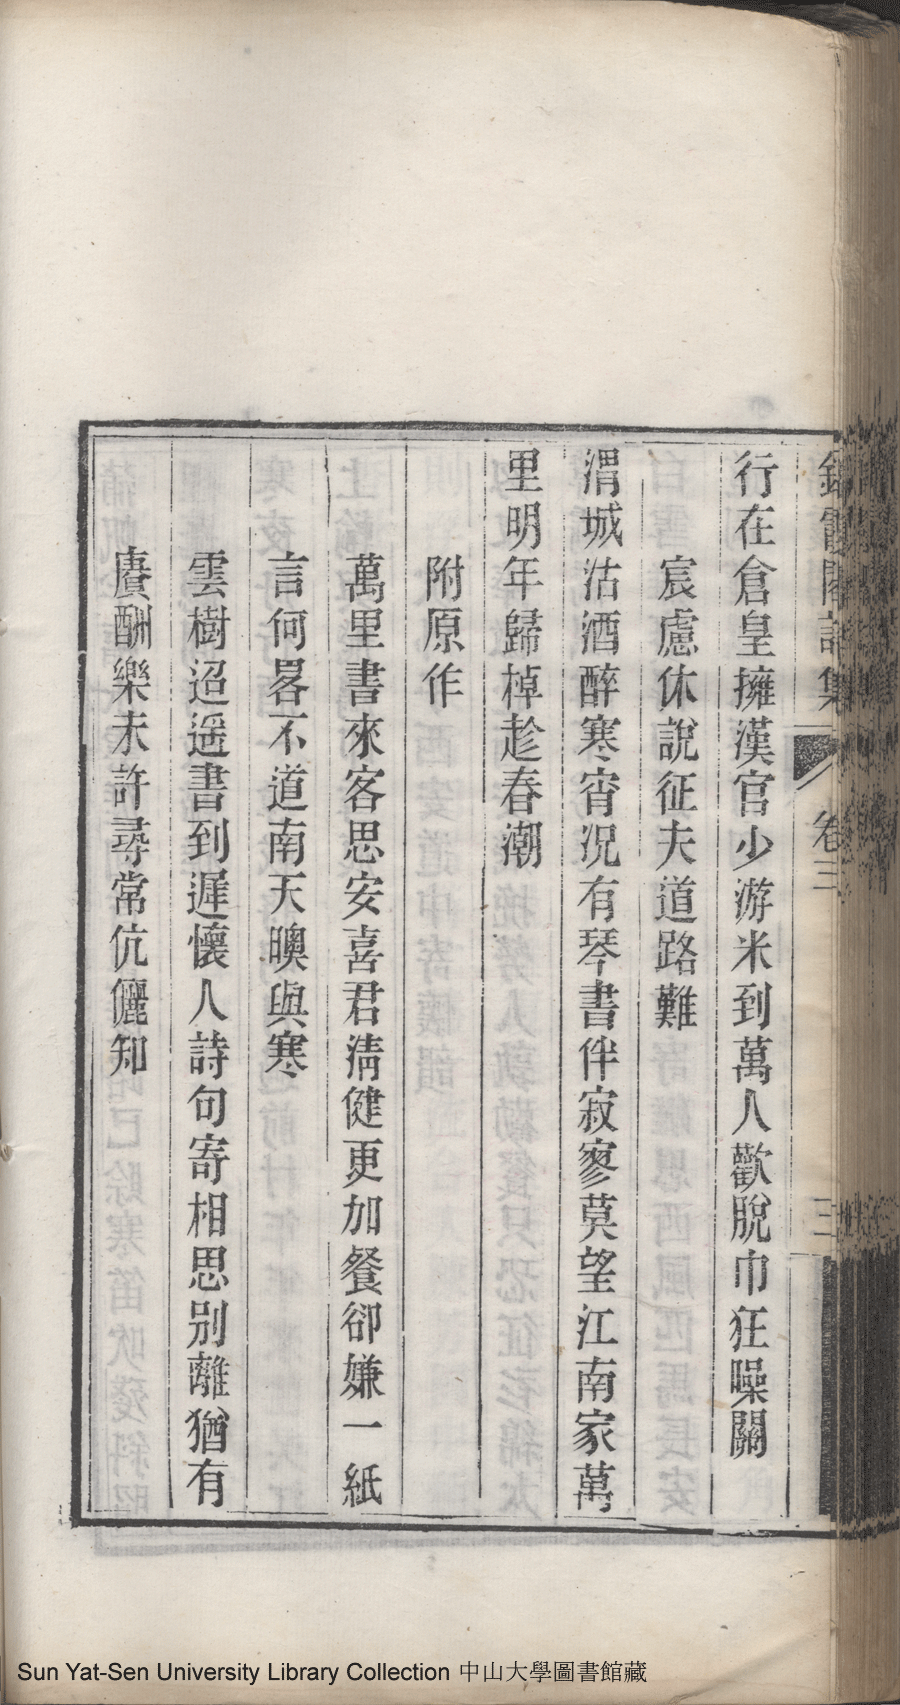 行在倉皇擁漢官少游米到萬人歡脫巾狂噪關
宸慮休說征夫道路難
渭城沽酒醉寒宵況有琴書伴寂寥莫望江南家萬
里明年歸棹趁春潮
附原作
萬里書來客思安喜君清健更加餐卻嫌一紙
言何畧不道南天暎與寒
雲樹迢遥書到遲懷人詩句寄相思别離猶有
賡酬樂未許尋常伉儷知
卷三
三
Sun Yat-Sen University Library Collection 中山大學圖書館藏